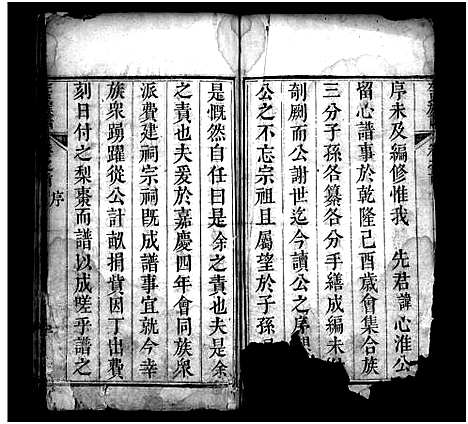 序未及編修惟我 先君諱心淮公
留心譜事於乾隆己酉歲會集合族
三分子孫各纂各分手繕成編未
剞劂而公謝世迄今讀公之序
公之不忘宗祖且屬望於子孫
是慨然自任曰是余之責也夫是余
之責也夫爰於嘉慶四年會同族眾
派費建祠宗祠既成譜事宜就今幸
族眾踴躍從公計畝捐貲因丁出費
刻日付之梨棗而譜以成嗟乎譜之
序